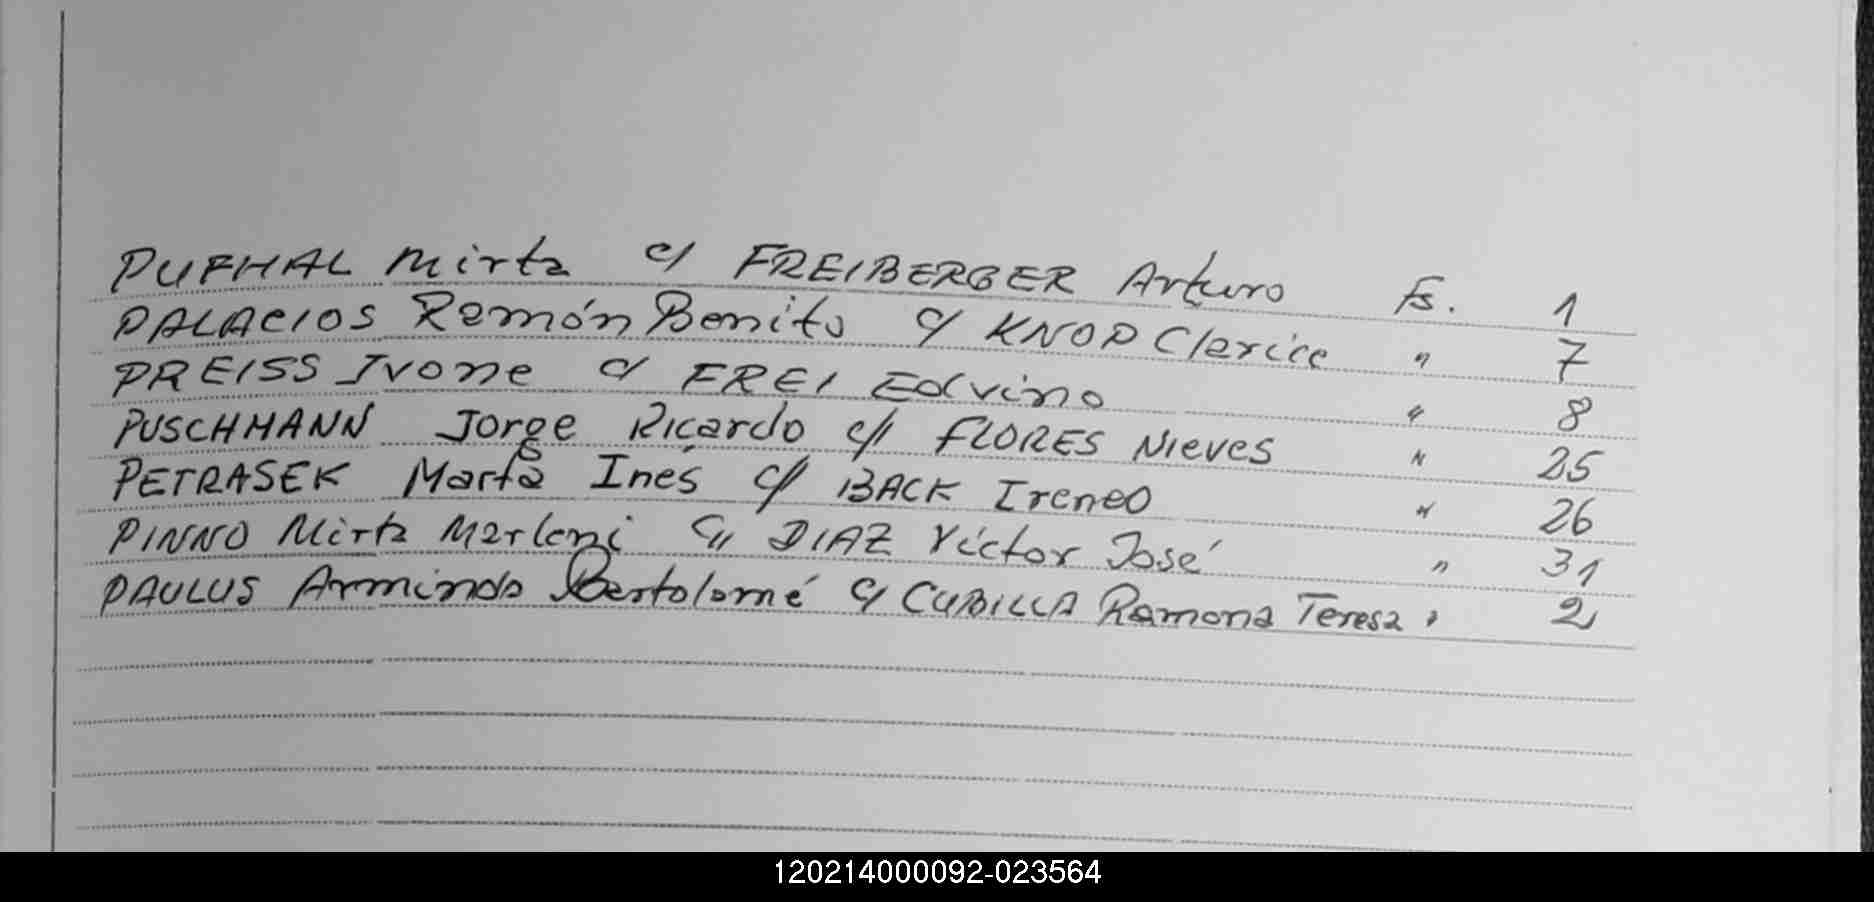 PUFHAL Mirta c/ FREIBERGER Arturo Fs. 1
PALACIOS Ramón Benito c/ KNOP Clarice " 7
PREISS Ivone c/ FREI Edvino " 8
PUSCHMANN Jorge Ricardo c/ FLORES Nieves " 25
PETRASEK Marta Inés c/ BACK Ireneo " 26
PINNO Mirta Marleni c/ DIAZ Víctor José " 31
PAULUS Armindo Bertolomé c/ CUBILLA Ramona Teresa " 2
120214000092-023564